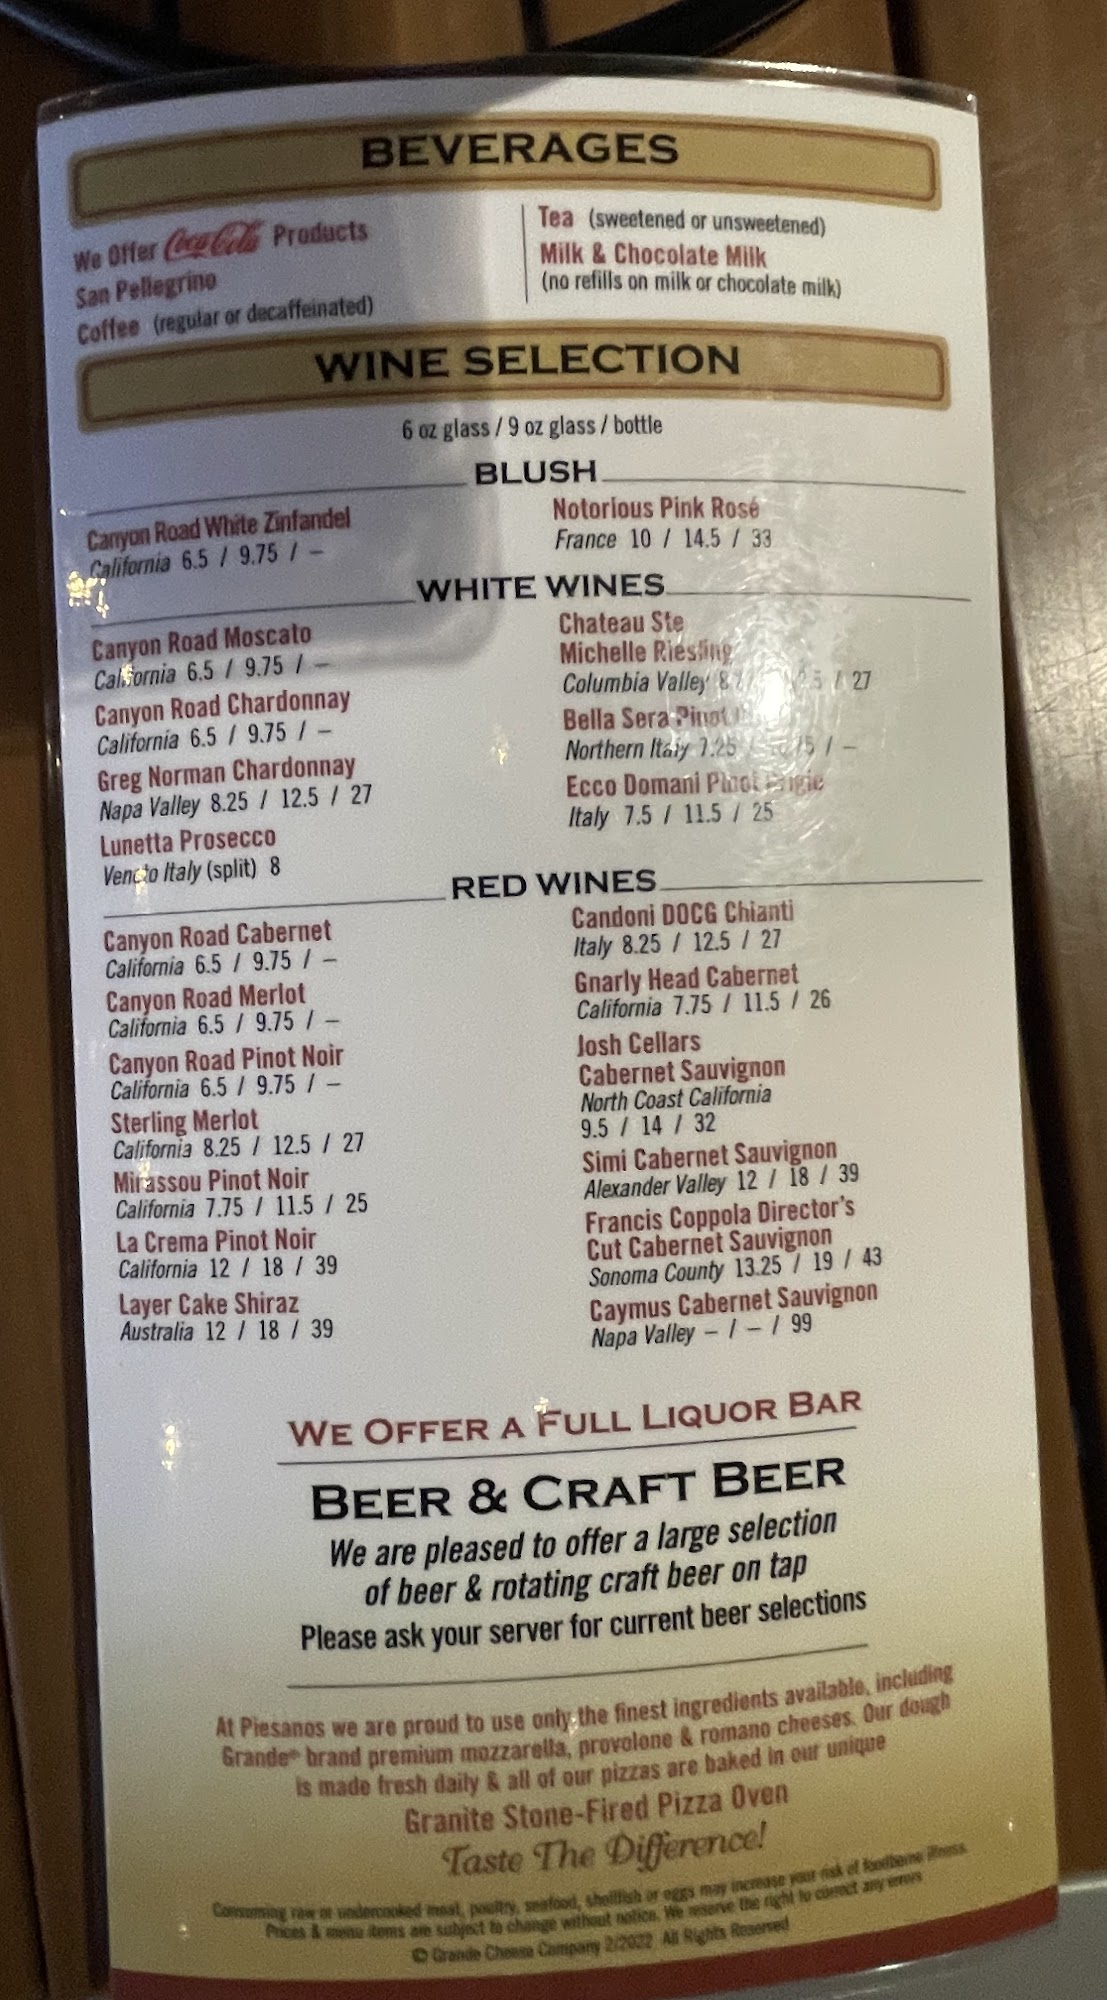 BEVERAGES
We Offer Coca-Cola Products
San Pellegrino
Coffee (regular or decaffeinated)
Tea (sweetened or unsweetened)
Milk & Chocolate Milk
(no refills on milk or chocolate milk)
WINE SELECTION
6 oz glass / 9 oz glass / bottle
BLUSH
Canyon Road White Zinfandel
California 6.5 / 9.75 / –
Notorious Pink Rosé
France 10 / 14.5 / 33
WHITE WINES
Canyon Road Moscato
California 6.5 / 9.75 / –
Canyon Road Chardonnay
California 6.5 / 9.75 / –
Greg Norman Chardonnay
Napa Valley 8.25 / 12.5 / 27
Lunetta Prosecco
Veneto Italy (split) 8
Chateau Ste
Michelle Riesling
Columbia Valley / 27
Bella Sera Pinot
Northern Italy 7.25 / –
Ecco Domani Pinot Grigio
Italy 7.5 / 11.5 / 25
RED WINES
Canyon Road Cabernet
California 6.5 / 9.75 / –
Canyon Road Merlot
California 6.5 / 9.75 / –
Canyon Road Pinot Noir
California 6.5 / 9.75 / –
Sterling Merlot
California 8.25 / 12.5 / 27
Mirassou Pinot Noir
California 7.75 / 11.5 / 25
La Crema Pinot Noir
California 12 / 18 / 39
Layer Cake Shiraz
Australia 12 / 18 / 39
Candoni DOCG Chianti
Italy 8.25 / 12.5 / 27
Gnarly Head Cabernet
California 7.75 / 11.5 / 26
Josh Cellars
Cabernet Sauvignon
North Coast California
9.5 / 14 / 32
Simi Cabernet Sauvignon
Alexander Valley 12 / 18 / 39
Francis Coppola Director's
Cut Cabernet Sauvignon
Sonoma County 13.25 / 19 / 43
Caymus Cabernet Sauvignon
Napa Valley – / – / 99
WE OFFER A FULL LIQUOR BAR
BEER & CRAFT BEER
We are pleased to offer a large selection
of beer & rotating craft beer on tap
Please ask your server for current beer selections
At Piesanos we are proud to use only the finest ingredients available, including
Grande® brand premium mozzarella, provolone & romano cheeses. Our dough
is made fresh daily & all of our pizzas are baked in our unique
Granite Stone-Fired Pizza Oven
Taste The Difference!
Consuming raw or undercooked meat, poultry, seafood, shellfish or eggs may increase your risk of foodborne illness.
Prices & menu items are subject to change without notice. We reserve the right to correct any errors
© Grande Cheese Company 2/2022 All Rights Reserved